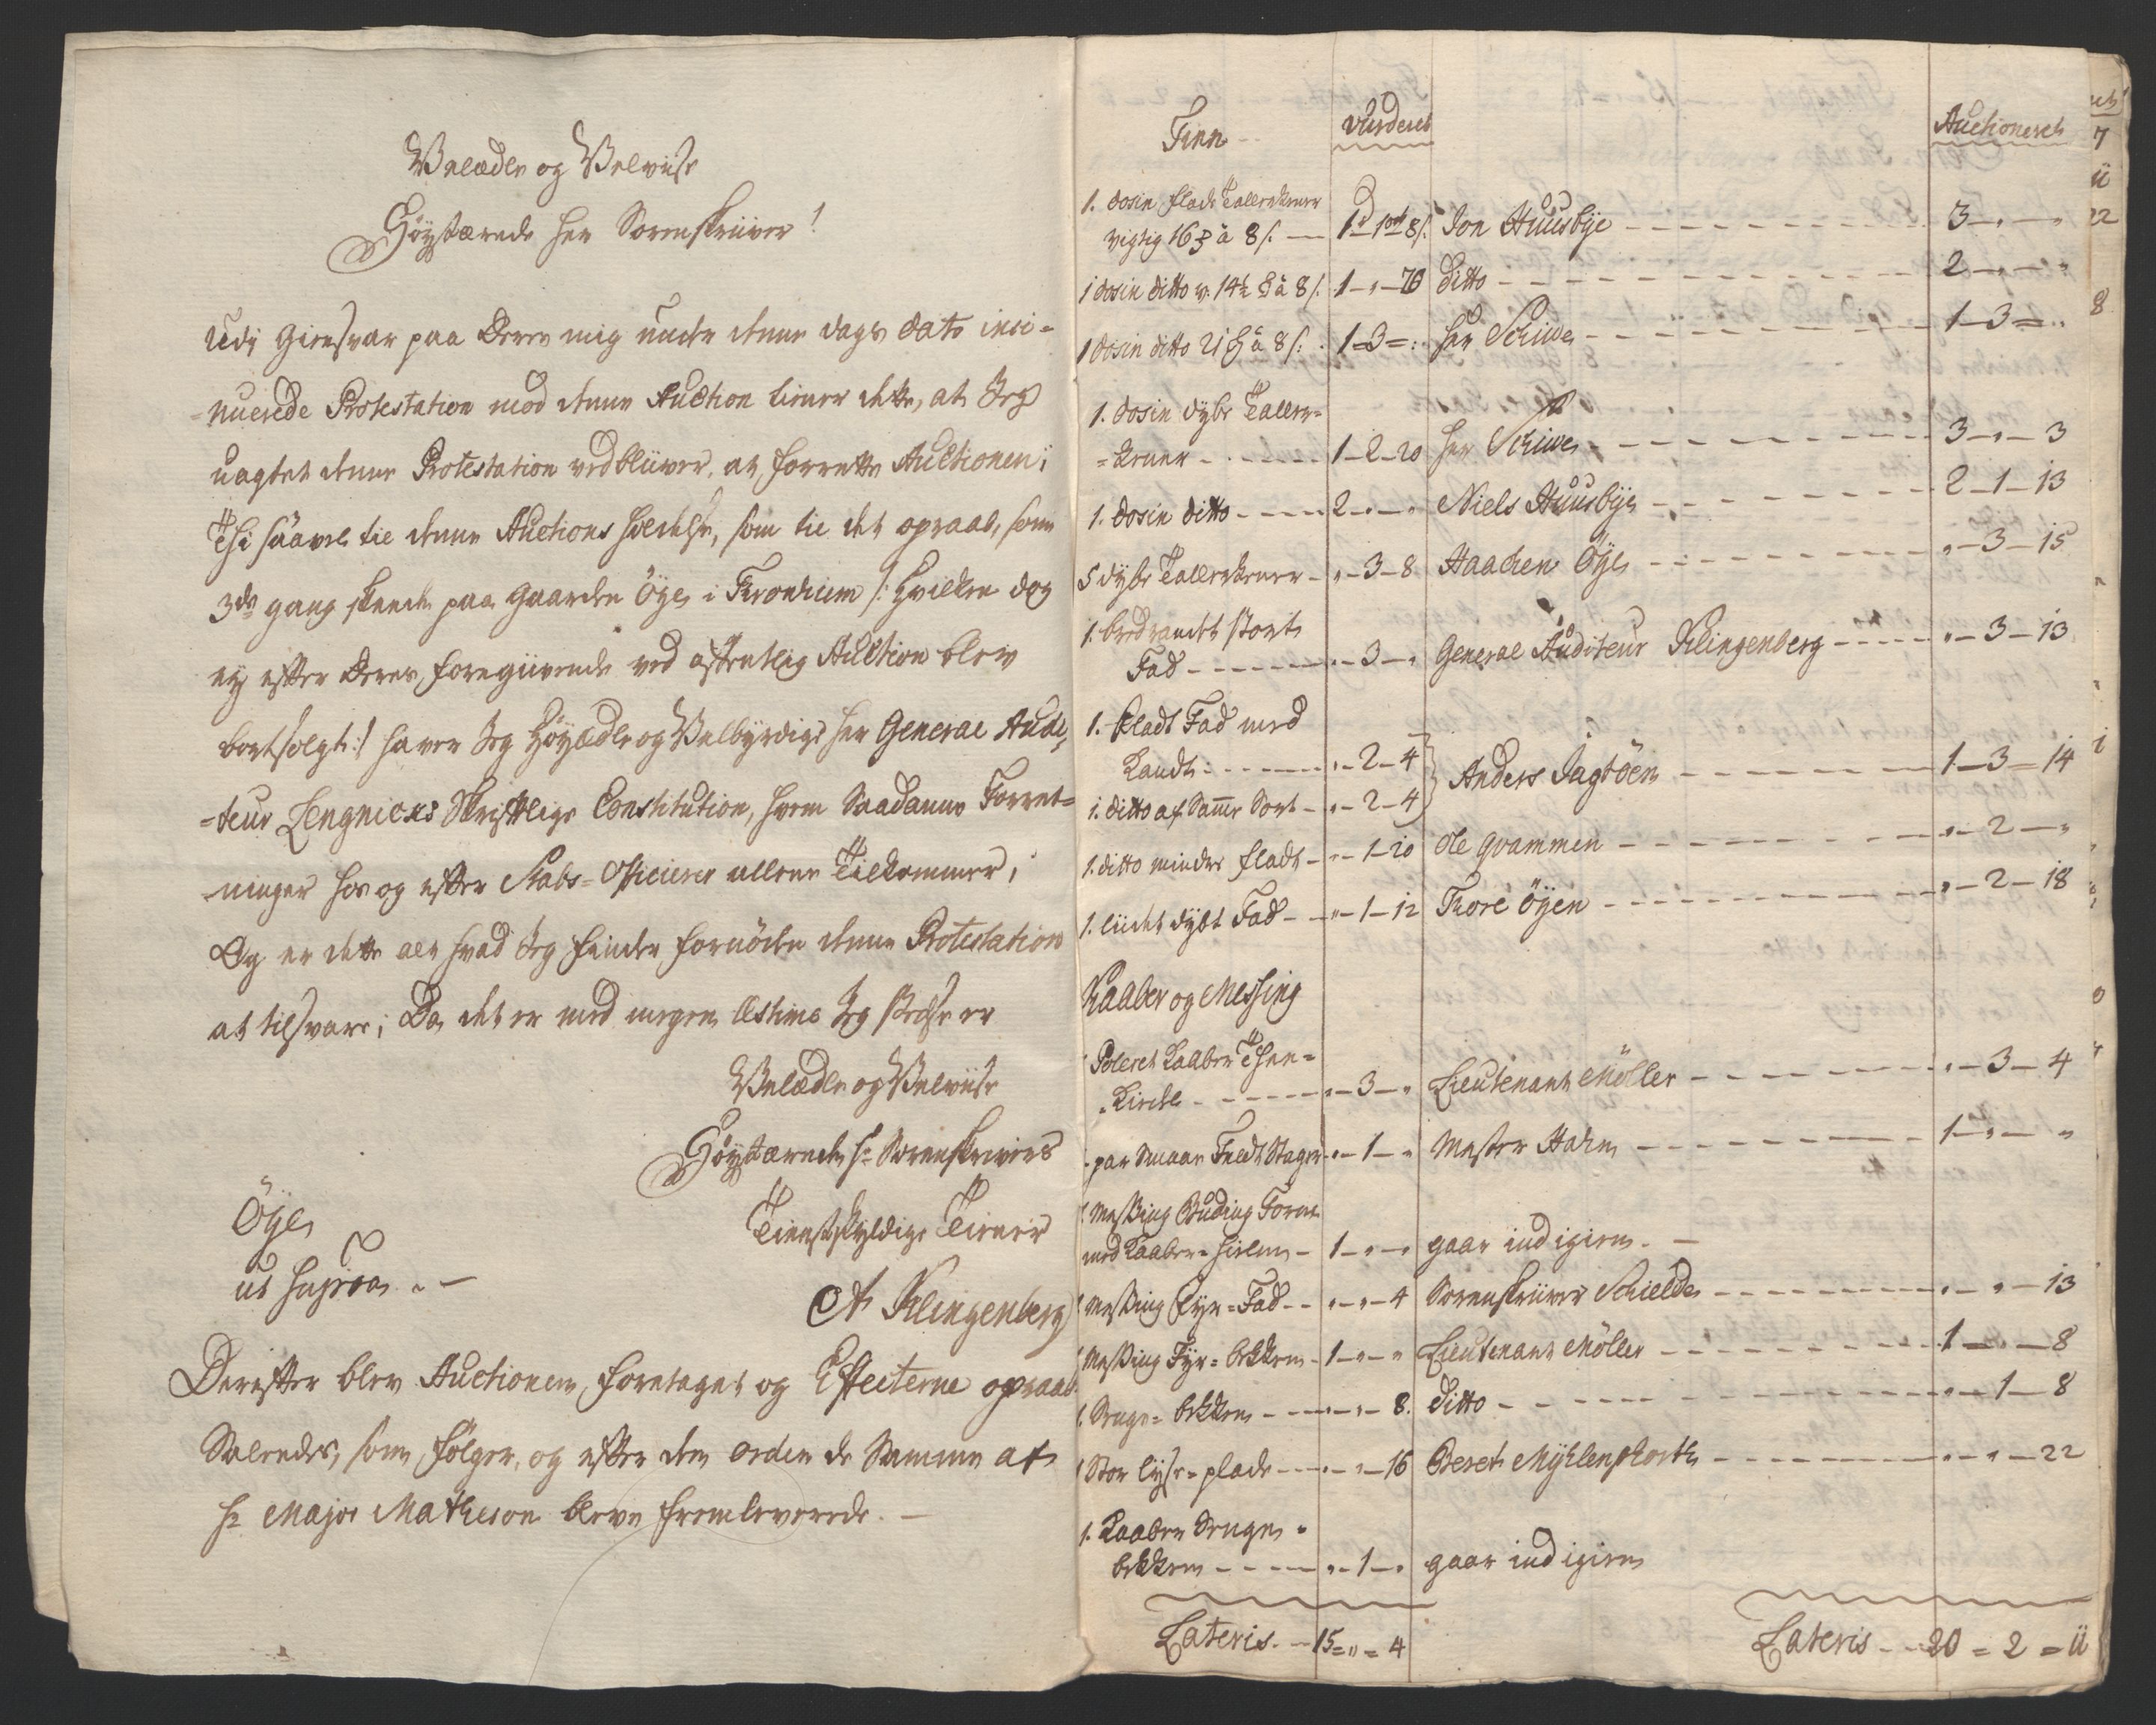 Velædle og Velviise
Høystærede Her Sorenskriiver!
Udj Giensvar paa Deres mig under denne dags dato insi-
nuerede Protestation mod denne Auction tiener dette, at Jeg
uagtet denne Protestation vedbliiver at forrette Auctionen;
Thi säavel til denne Auctions holdelse, som til det opraab, som
3de gang skeede paa Gaarden Öye i Trondhiem /: hvilken dog
ej efter Deres foregiivende ved offentlig Auction blev
bortsolgt :/ haver Jeg Høyædle og Velbyrdige Her General Audi-
-teur Lengnicks Skriftlige Constitution, hvem Saadanne Forret-
ninger hos og efter Stabs-Officierer allene Tilkommer;
Og er dette alt hvad Jeg finder fornöden denne Protestation
at tilsvare; Da det er med megen Æstime Jeg stedse er
Velædle og Velviise
Høystærede Hr Sorenskrivers
Öye
Tienstskyldige Tiener
ut supra. -
A Klingenberg
Derefter blev Auctionen foretaget og Effecterne opraab-
Saaledes, som følger, og efter den orden de Samme af
Hr Major Matheson bleve fremleverede. -
Tinn - Vurderet Auctioneret
1. dosin flade Tallerkener
vigtig 16 ℔ à 8 /. - 1d 1ort 8/. Jon Huusbye - 3 - " - "
1 dosin ditto v. 14½ ℔ à 8 /. 1 - " - 20 ditto - 2 - " - "
1 dosin ditto 21 ℔ à 8 /: 1=3=: Her Schive - 1-3=:
1. dosin dybe Taller-
=kener - 1-2-20 Her Schive - 3-"-3
1. dosin ditto - 2-"-" Niels Huusbye - 2-1-13
5 dybe Tallerkener - "-3-8 Haachen Öye - "-3-15
1. bredrandet stort
Fad - "-3-" General Auditeur Klingenberg - "-3-13
1. Fladt Fad med
Kandt - "-2-4
Anders Jagtöen - 1-3-14
1. ditto af Samme Sort - "-2-4
1. ditto mindre fladt - "-1-20 Ole Qvammen - "-2-"
1. lidet dybt Fad - "-1-12 Thore Öyen - "-2-18
Kaaber og Messing
Poleret Kaaber Thee-
-Kiedel - "-3-" Lieutenant Möller - "-3-4
par Smaae Stager - "-1-" Mester Hahn - 1-"-"
1 Messing Puding Form
med Kaaber - 1-"-" gaar ind igien. -
1 Messing Fyr-Fad - "-"-4 Sorenskriiver Schielde - "-"-13
1 Messing Fyr-bekken - 1-"-" Lieutenant Möller - 1-"-8
1. Senge-bekken - "-"-8. ditto - "-1-8
1 Stor lyse-plade - "-"-16 Beret Myhlenphorth - "-"-22
1. Kaaber Senge-
bekken - "-1-" gaar ind igien
Lateris. - 15="=4 Lateris - 20=2=ii